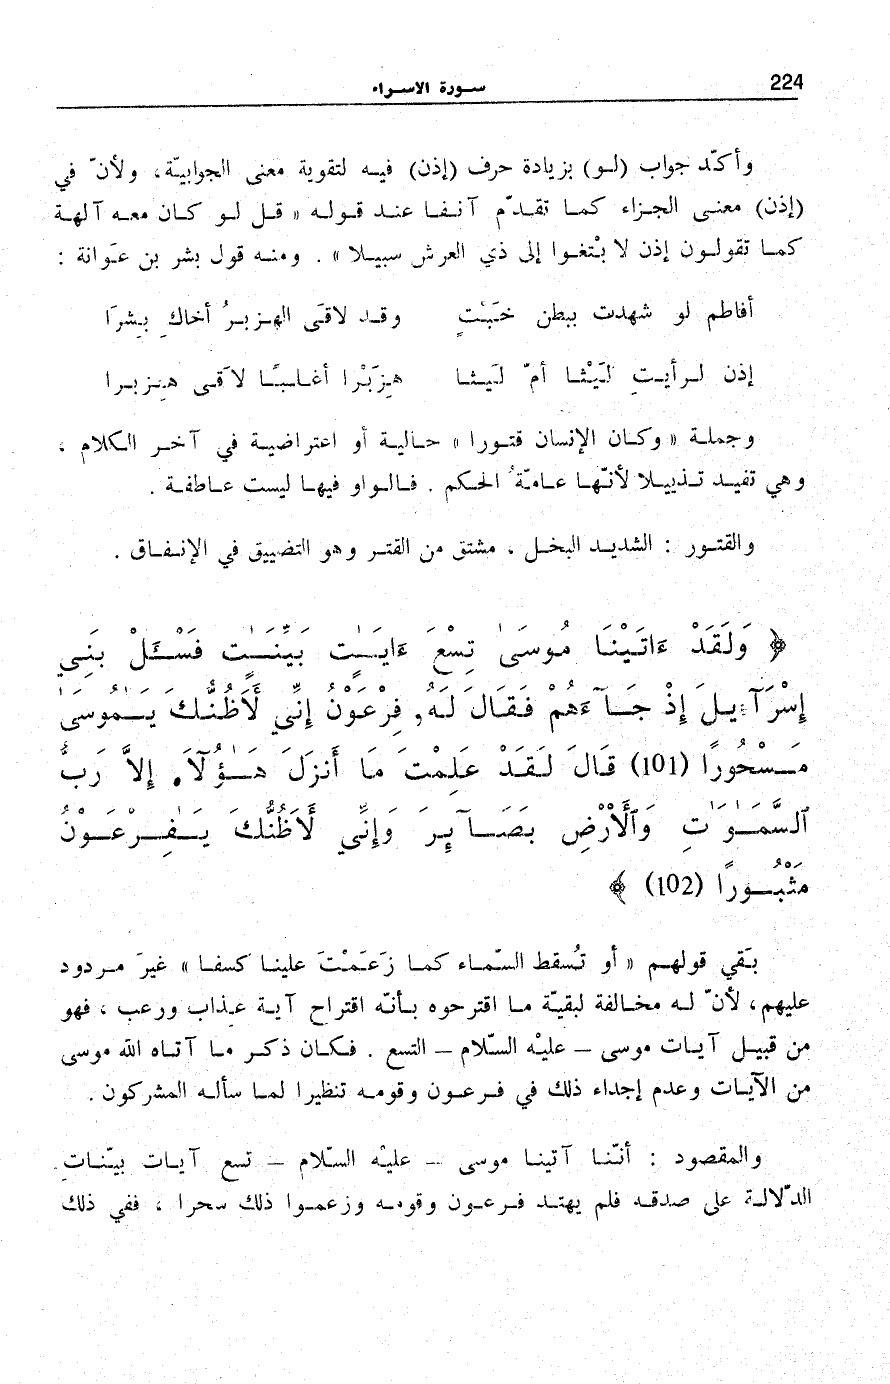 224
سورة الاسراء
وأكّد جواب (لو) بزيادة حرف (إذن) فيه لتقوية معنى الجوابيّة، ولأنّ في
(إذن) معنى الجزاء كما تقدّم آنفا عند قوله « قل لو كان معه آلهة
كما تقولون إذن لا بْتغوا إلى ذي العرش سبيلا » . ومنه قول بشر بن عوَانة :
أفاطم لو شهدت ببطن خَبْتٍ وقد لاقَى الهزبرُ أخاكِ بِشرَا
إذن لرأيتِ لَيْثا أمّ لَيثا هِزَبْرا أغلبًا لاَقى هِزبرا
وجملة « وكان الإنسان قتورا » حالية أو اعتراضية في آخر الكلام ،
وهي تفيد تذييلا لأنّها عامّةُ الحكم . فالواو فيها ليست عاطفة .
والقتور : الشديد البخل ، مشتق من القتر وهو التضييق في الإنفاق .
﴿ وَلَقَدْ ءَاتَيْنَا مُوسَىٰ تِسْعَ ءَايَٰتٍ بَيِّنَٰتٍ فَسْـَٔلْ بَنِي
إِسْرَآءِيلَ إِذْ جَآءَهُمْ فَقَالَ لَهُۥ فِرْعَوْنُ إِنِّي لَأَظُنُّكَ يَٰمُوسَىٰ
مَسْحُورًا (101) قَالَ لَقَدْ عَلِمْتَ مَا أَنزَلَ هَٰؤُلَآءِ إِلاَّ رَبُّ
ٱلسَّمَٰوَٰتِ وَٱلْأَرْضِ بَصَآئِرَ وَإِنِّي لَأَظُنُّكَ يَٰفِرْعَوْنُ
مَثْبُورًا (102) ﴾
بَقي قولهم « أو تُسقط السّماء كما زَعَمْتَ علينا كسفا » غيرَ مردود
عليهم، لأنّ له مخالفة لبقيّة ما اقترحوه بأنّه اقتراح آية عذاب ورعب ، فهو
من قبيل آيات موسى – عليْه السّلام – التسع . فكان ذكر ما آتاه الله موسى
من الآيات وعدم إجداء ذلك في فرعون وقومه تنظيرا لما سأله المشركون .
والمقصود : أنّنا آتينا موسى – عليْه السّلام – تسع آيات بيّنات
الدّلالة على صدقه فلم يهتد فرعون وقومه وزعموا ذلك سحرا ، ففي ذلك